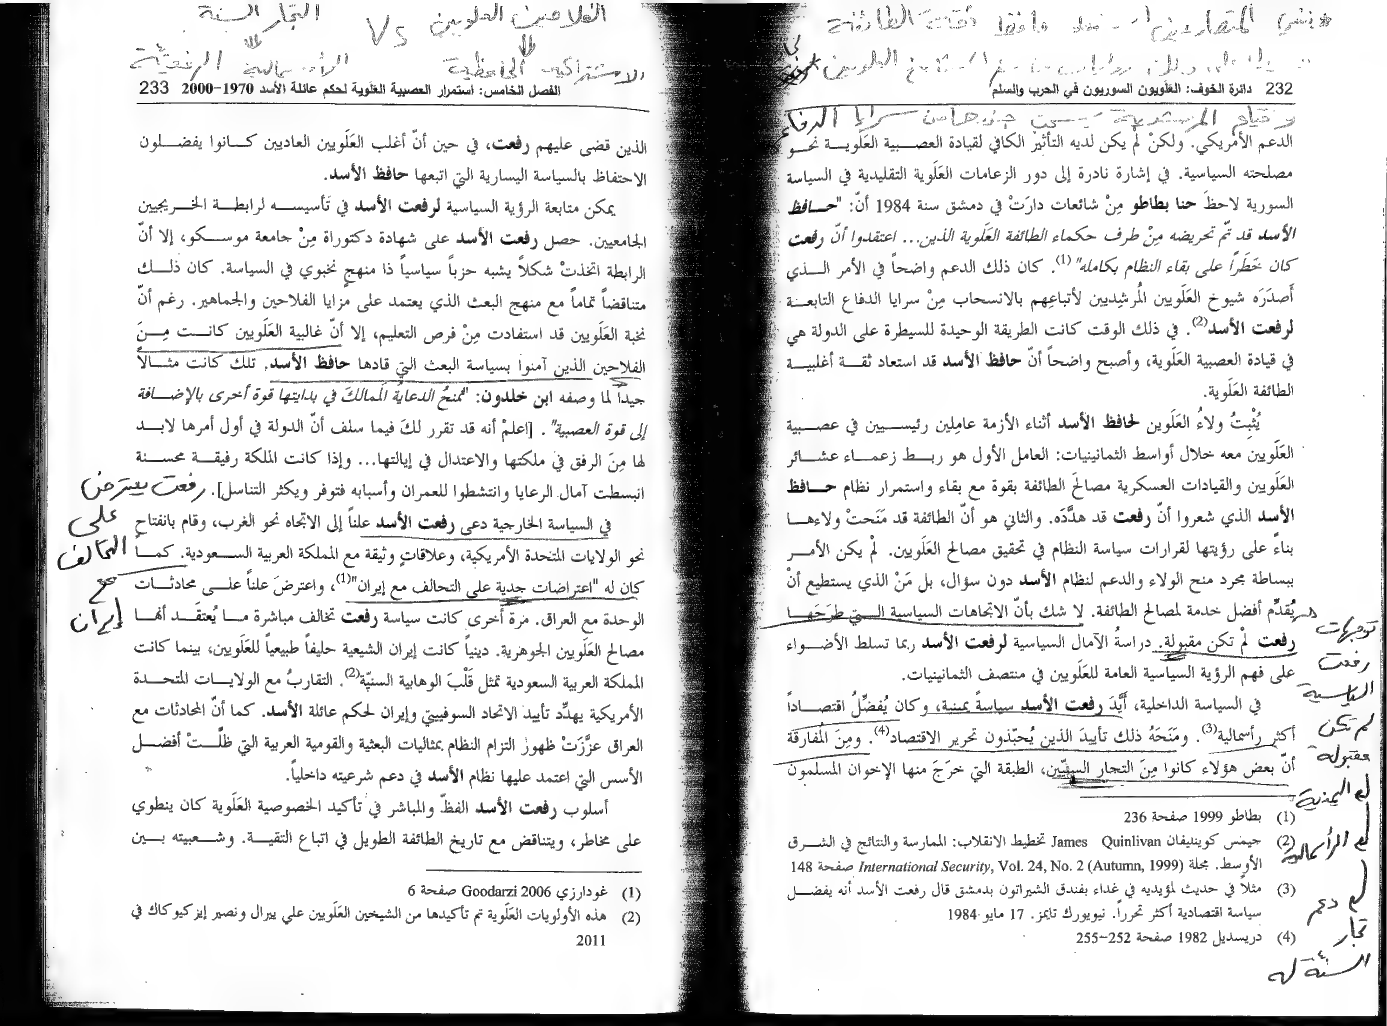 232 دائرة الخوف: العَلويون السوريون في الحرب والسلم
الدعم الأمريكي. ولكنْ لمْ يكن لديه التأثيرُ الكافي لقيادة العصـبية العَلَويـــة نحـــو
مصلحته السياسية. في إشارة نادرة إلى دور الزعامات العَلَوية التقليدية في السياسة
السورية لاحظَ حنا بطاطو مِنْ شائعات دارَتْ في دمشق سنة 1984 أنّ: "حـــافظ
الأسد قد تمّ تحريضه مِنْ طرف حكماء الطائفة العَلَوية الذين... اعتقدوا أنّ رفعت
كان خَطَراً على بقاء النظام بكامله"(1). كان ذلك الدعم واضحاً في الأمر الـــذي
أصدَرَه شيوخ العَلَويين المُرشِديين لأتباعِهم بالانسحاب مِنْ سرايا الدفاع التابعـــة
لرفعت الأسد(2). في ذلك الوقت كانت الطريقة الوحيدة للسيطرة على الدولة هي
في قيادة العصبية العَلَوية، وأصبح واضحاً أنّ حافظ الأسد قد استعاد ثقـــة أغلبيـــة
الطائفة العَلَوية.
يُثْبِتُ ولاءُ العَلَويين لحافظ الأسد أثناء الأزمة عامِلين رئيســيين في عصــبية
العَلَويين معه خلال أواسط الثمانينيات: العامل الأول هو ربـــط زعمـــاء عشـــائر
العَلَويين والقيادات العسكرية مصالحَ الطائفة بقوة مع بقاء واستمرار نظام حـــافظ
الأسد الذي شعروا أنّ رفعت قد هدَّدَه. والثاني هو أنّ الطائفة قد مَنَحتْ ولاءهـــا
بناءً على رؤيتها لقرارات سياسة النظام في تحقيق مصالح العَلَويين. لمْ يكن الأمـــر
ببساطة مجرد منح الولاء والدعم لنظام الأسد دون سؤال، بل مَنْ الذي يستطيع أنْ
يُقدِّم أفضل خدمة لمصالح الطائفة. لا شك بأنّ الاتجاهات السياسية الـــتي طرَحَهـــا
رفعت لمْ تكن مقبولة. دراسةُ الآمال السياسية لرفعت الأسد ربما تسلط الأضـــواء
على فهم الرؤية السياسية العامة للعَلَويين في منتصف الثمانينيات.
في السياسة الداخلية، أيَّدَ رفعت الأسد سياسةً يمينية، وكان يُفضِّلُ اقتصـــاداً
أكثر رأسمالية(3). ومنَحَهُ ذلك تأييدَ الذين يُحبّذون تحرير الاقتصاد(4). ومِنَ المُفارَقة
أنّ بعض هؤلاء كانوا مِنَ التجار السنِّيّين، الطبقة التي خرَجَ منها الإخوان المسلمون
(1) بطاطو 1999 صفحة 236
(2) جيمس كوينليفان James Quinlivan تخطيط الانقلاب: الممارسة والنتائج في الشـــرق
الأوسط. مجلة International Security, Vol. 24, No. 2 (Autumn, 1999) صفحة 148
(3) مثلاً في حديث لمؤيديه في غداء بفندق الشيراتون بدمشق قال رفعت الأسد أنه يفضـــل
سياسة اقتصادية أكثر تحرراً. نيويورك تايمز. 17 مايو 1984
(4) دريسديل 1982 صفحة 252–255
توجهات
رفعت
السياسية
لم تكن
مقبولة
اليمينية
الرأسمالية
دعم
تجار
السنّة له
الفلاحين العلويين Vs التجار السنة
الفصل الخامس: استمرار العصبية العَلَوية لحكم عائلة الأسد 1970–2000 233
الذين قضى عليهم رفعت، في حين أنّ أغلب العَلَويين العاديين كـــانوا يفضـــلون
الاحتفاظ بالسياسة اليسارية التي اتبعها حافظ الأسد.
يمكن متابعة الرؤية السياسية لرفعت الأسد في تأسيســـه لرابطـــة الخـــريجيين
الجامعيين. حصل رفعت الأسد على شهادة دكتوراة مِنْ جامعة موســـكو، إلا أنّ
الرابطة اتخذتْ شكلاً يشبه حزباً سياسياً ذا منهج نخبوي في السياسة. كان ذلـــك
متناقضاً تماماً مع منهج البعث الذي يعتمد على مزايا الفلاحين والجماهير. رغم أنّ
نخبة العَلَويين قد استفادت مِنْ فرص التعليم، إلا أنّ غالبية العَلَويين كانـــت مِـــنَ
الفلاحين الذين آمنوا بسياسة البعث التي قادها حافظ الأسد. تلك كانت مثـــالاً
جيداً لما وصفه ابن خلدون: "تمنحُ الدعايةُ الممالكَ في بدايتها قوة أخرى بالإضـــافة
إلى قوة العصبية". [اعلمْ أنه قد تقرر لكَ فيما سلف أنّ الدولة في أول أمرها لابـــد
لها مِنَ الرفق في ملكتها والاعتدال في إيالتها... وإذا كانت الملكة رفيقـــة محســـنة
انبسطت آمال الرعايا وانتشطوا للعمران وأسبابه فتوفر ويكثر التناسل].
في السياسة الخارجية دعى رفعت الأسد علناً إلى الاتجاه نحو الغرب، وقام بانفتاح
نحو الولايات المتحدة الأمريكية، وعلاقاتٍ وثيقة مع المملكة العربية الســـعودية. كمـــا
كان له "اعتراضات جدية على التحالف مع إيران"(1)، واعترضَ علناً علـــى محادثـــات
الوحدة مع العراق. مرة أخرى كانت سياسة رفعت تخالف مباشرة مـــا يُعتقَـــد أنهـــا
مصالح العَلَويين الجوهرية. دينياً كانت إيران الشيعية حليفاً طبيعياً للعَلَويين، بينما كانت
المملكة العربية السعودية تمثل قَلْبَ الوهابية السنيّة(2). التقاربُ مع الولايـــات المتحـــدة
الأمريكية يهدِّد تأييد الاتحاد السوفييتي وإيران لحكم عائلة الأسد. كما أنّ المحادثات مع
العراق عزَّزَتْ ظهور التزام النظام بمثاليات البعثية والقومية العربية التي ظلَّـــتْ أفضـــل
الأسس التي اعتمد عليها نظام الأسد في دعم شرعيته داخلياً.
أسلوب رفعت الأسد الفظّ والمباشر في تأكيد الخصوصية العَلَوية كان ينطوي
على مخاطر، ويتناقض مع تاريخ الطائفة الطويل في اتباع التقيـــة. وشـــعبيته بـــين
(1) غودارزي Goodarzi 2006 صفحة 6
(2) هذه الأولويات العَلَوية تم تأكيدها من الشيخين العَلَويين علي ييرال ونصير إيزكيوكاك في
2011
رفعت يعترض
على
التحالف
مع
إيران